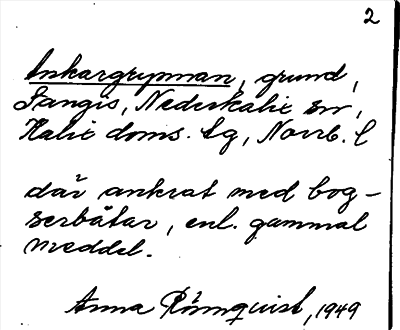 2
Ankargrynnan, grund,
Sangis, Nederkalix sn,
Kalix doms. tg, Norrb. l
där ankrat med bog-
serbåtar, enl. gammal
meddel.
Anna Rönnquist, 1949